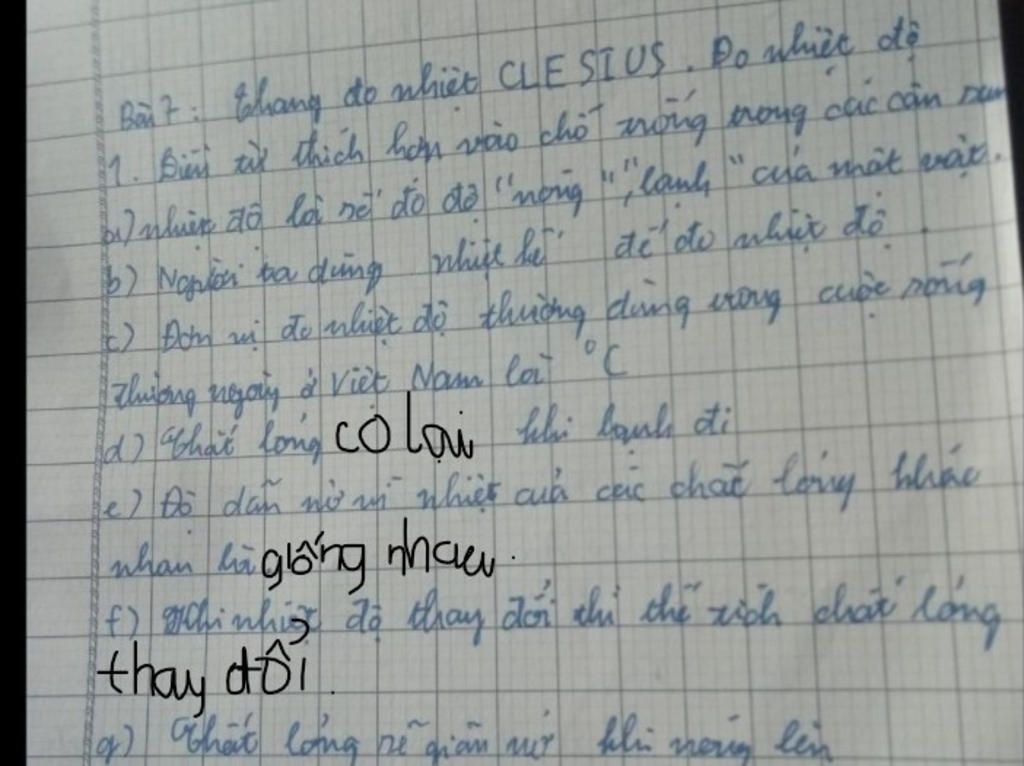 Bài 7: Thang đo nhiệt CLESIUS. Đo nhiệt độ
1. Điền từ thích hợp vào chỗ trống trong các câu sau
a) nhiệt độ là số đo độ "nóng", "lạnh" của một vật.
b) Người ta dùng nhiệt kế để đo nhiệt độ.
c) Đơn vị đo nhiệt độ thường dùng trong cuộc sống
thường ngày ở Việt Nam là °C
d) Chất lỏng cọ lại khi lạnh đi
e) Độ dãn nở vì nhiệt của các chất lỏng khác
nhau là giống nhau.
f) Khi nhiệt độ thay đổi thì thể tích chất lỏng
thay đổi.
g) Chất lỏng sẽ giãn nở khi nóng lên